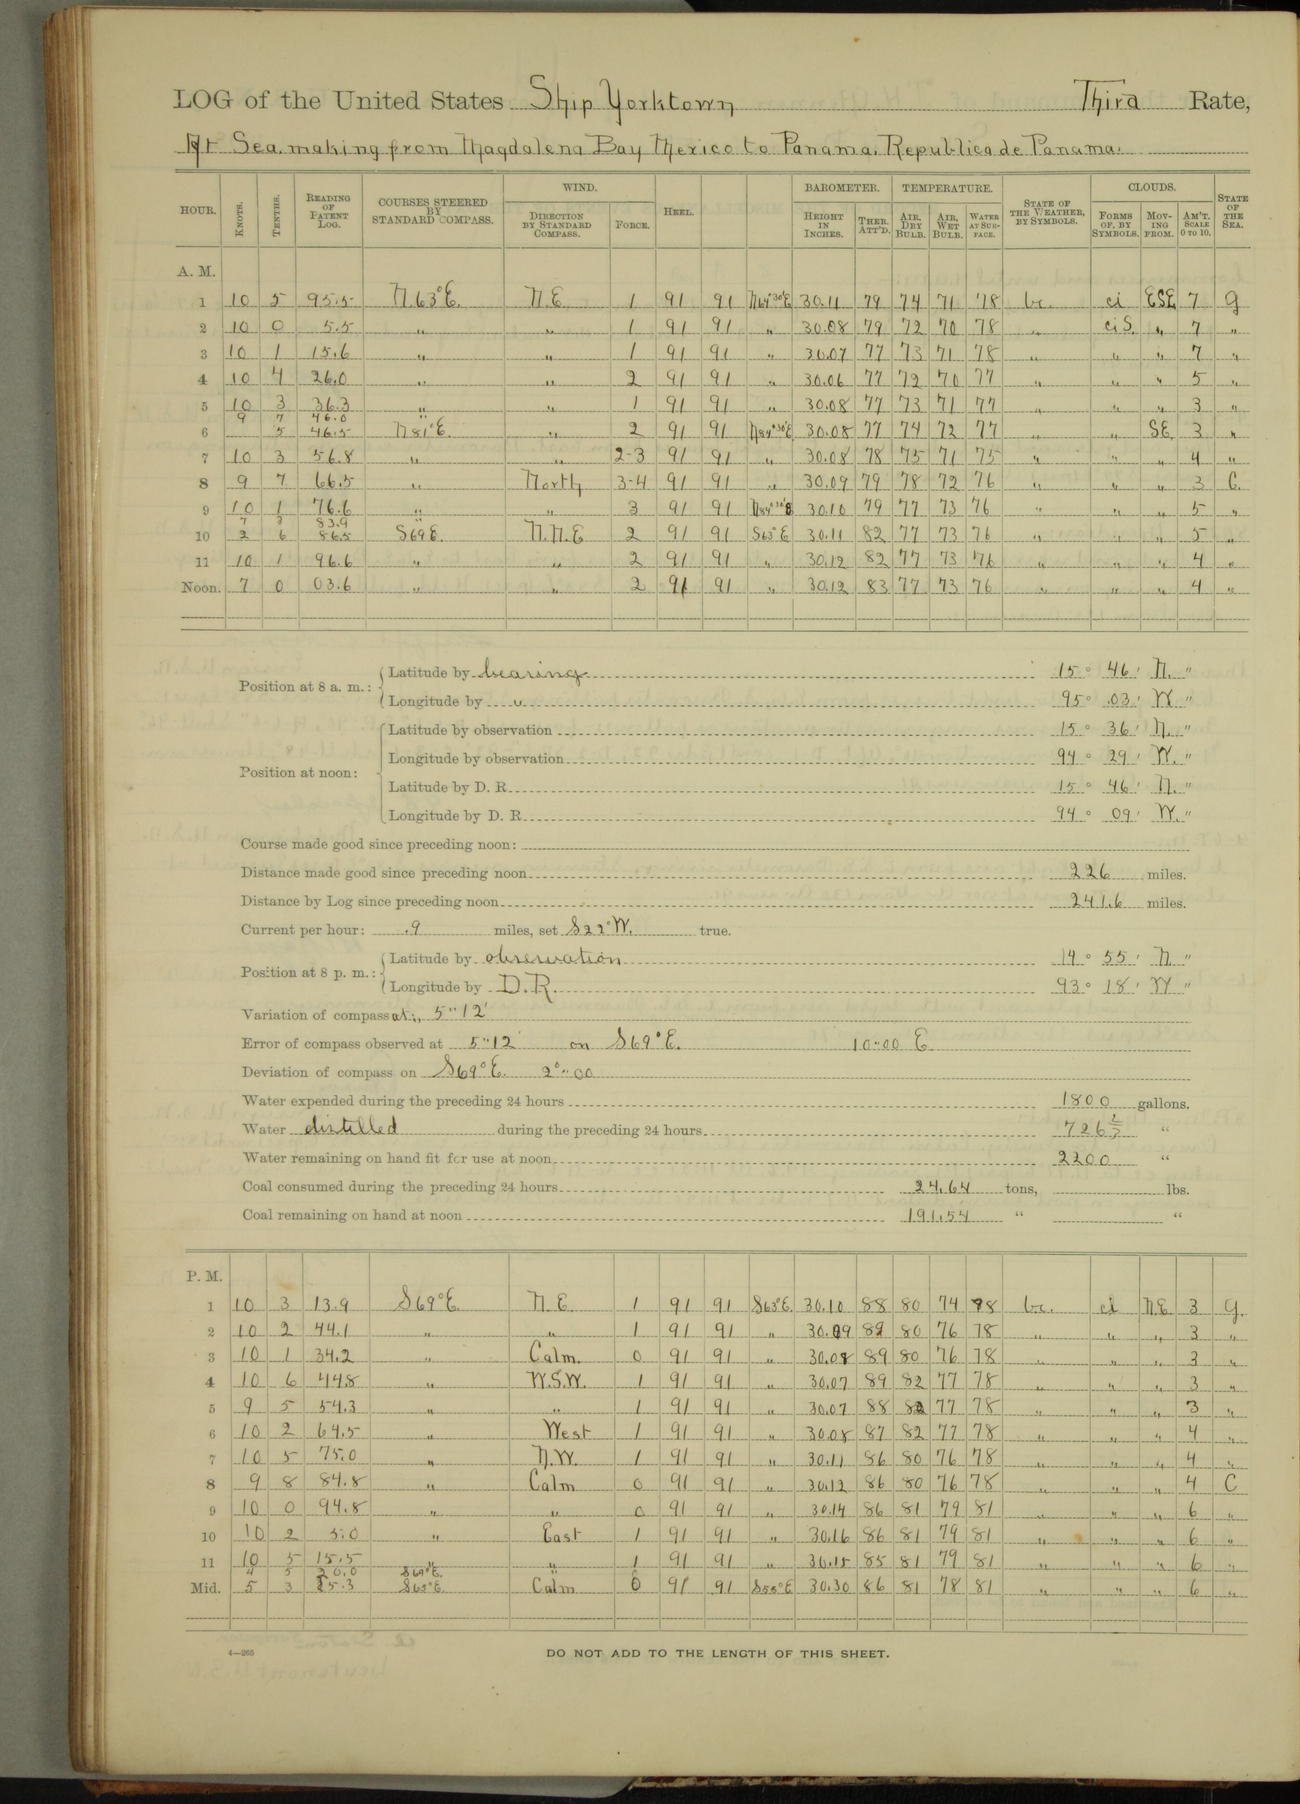 LOG of the United States Ship Yorktown Third Rate,
At Sea, making from Magdalena Bay Mexico to Panama, Republica de Panama.
HOUR. KNOTS. TENTHS. READING OF PATENT LOG. COURSES STEERED BY STANDARD COMPASS. WIND. DIRECTION BY STANDARD COMPASS. FORCE. HEEL. BAROMETER. HEIGHT IN INCHES. THER. ATT'D. TEMPERATURE. AIR, DRY BULB. AIR, WET BULB. WATER AT SURFACE. STATE OF THE WEATHER, BY SYMBOLS. CLOUDS. FORMS OF, BY SYMBOLS. MOVING FROM. AM'T. SCALE 0 TO 10. STATE OF THE SEA.
A. M.
1 10 5 95.5 N.63°E. N.E. 1 91 91 30.11 79 74 71 78 bc. ci ESE 7 g
2 10 0 5.5 " " 1 91 91 " 30.08 79 72 70 78 " ci S. " 7 "
3 10 1 15.6 " " 1 91 91 " 30.07 77 73 71 78 " " " 7 "
4 10 4 26.0 " " 2 91 91 " 30.06 77 72 70 77 " " " 5 "
5 10 3 36.3 " " 1 91 91 " 30.08 77 73 71 77 " " " 3 "
9 7 46.0 "
6 5 46.5 N81°E. " 2 91 91 30.08 77 74 72 77 " " SE 3 "
7 10 3 56.8 " " 2-3 91 91 " 30.08 78 75 71 75 " " " 4 "
8 9 7 66.5 " North 3-4 91 91 " 30.09 79 78 72 76 " " " 3 C.
9 10 1 76.6 " " 3 91 91 30.10 79 77 73 76 " " " 5 "
7 3 83.9 "
10 2 6 86.5 S69E. N.N.E 2 91 91 S63°E 30.11 82 77 73 76 " " " 5 "
11 10 1 96.6 " " 2 91 91 " 30.12 82 77 73 76 " " " 4 "
Noon. 7 0 03.6 " " 2 91 91 " 30.12 83 77 73 76 " " " 4 "
Position at 8 a. m.: Latitude by bearing 15° 46' N. "
Longitude by " 95° 03' W "
Position at noon: Latitude by observation 15° 36' N. "
Longitude by observation 94° 29' W. "
Latitude by D. R. 15° 46' N. "
Longitude by D. R. 94° 09' W. "
Course made good since preceding noon:
Distance made good since preceding noon 226 miles.
Distance by Log since preceding noon 241.6 miles.
Current per hour: .9 miles, set S22°W. true.
Position at 8 p. m.: Latitude by observation 14° 55' N "
Longitude by D.R. 93° 18' W "
Variation of compass at 5" 12'
Error of compass observed at 5" 12 on S69°E. 10°00 E
Deviation of compass on S69°E. 2°00
Water expended during the preceding 24 hours 1800 gallons.
Water distilled during the preceding 24 hours 726 "
Water remaining on hand fit for use at noon 2200 "
Coal consumed during the preceding 24 hours 24.64 tons, lbs.
Coal remaining on hand at noon 191.54 " "
P. M.
1 10 3 13.9 S69°E. N.E. 1 91 91 S63°E. 30.10 88 80 74 78 bc. ci N.E. 3 g.
2 10 2 44.1 " " 1 91 91 " 30.09 89 80 76 78 " " " 3 "
3 10 1 34.2 " Calm. 0 91 91 " 30.08 89 80 76 78 " " " 3 "
4 10 6 44.8 " W.S.W. 1 91 91 " 30.07 89 82 77 78 " " " 3 "
5 9 5 54.3 " " 1 91 91 " 30.07 88 82 77 78 " " " 3 "
6 10 2 64.5 " West 1 91 91 " 30.08 87 82 77 78 " " " 4 "
7 10 5 75.0 " N.W. 1 91 91 " 30.11 86 80 76 78 " " " 4 "
8 9 8 84.8 " Calm 0 91 91 " 30.12 86 80 76 78 " " " 4 C
9 10 0 94.8 " " 0 91 91 " 30.14 86 81 79 81 " " " 6 "
10 10 2 5.0 " East 1 91 91 " 30.16 86 81 79 81 " " " 6 "
11 10 5 15.5 " " 1 91 91 " 30.15 85 81 79 81 " " " 6 "
4 5 20.0 S69°E. "
Mid. 5 3 25.3 S63°E. Calm 0 91 91 S55°E 30.30 86 81 78 81 " " " 6 "
4—265
DO NOT ADD TO THE LENGTH OF THIS SHEET.